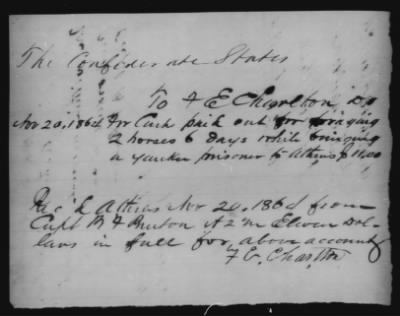 The Confederate States
To F E Charlton Dr
Nov 20, 1864 For Cash paid out for foraging
2 horses 6 days while bringing
a yankee prisoner to Athens $ 11.00
Rec'd Athens Nov 20, 1864 from
Capt A Q M Eleven Dol-
lars in full for above account
F E Charlton